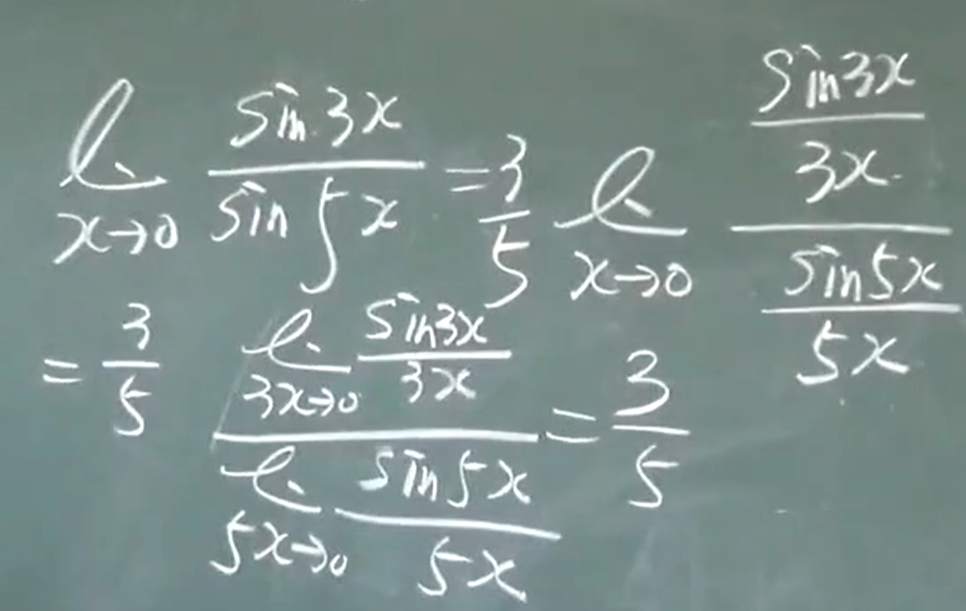 lim x→0 sin 3x / sin 5x = 3/5 lim x→0 (sin3x / 3x) / (sin5x / 5x)
= 3/5 (lim 3x→0 sin3x / 3x) / (lim 5x→0 sin5x / 5x) = 3/5